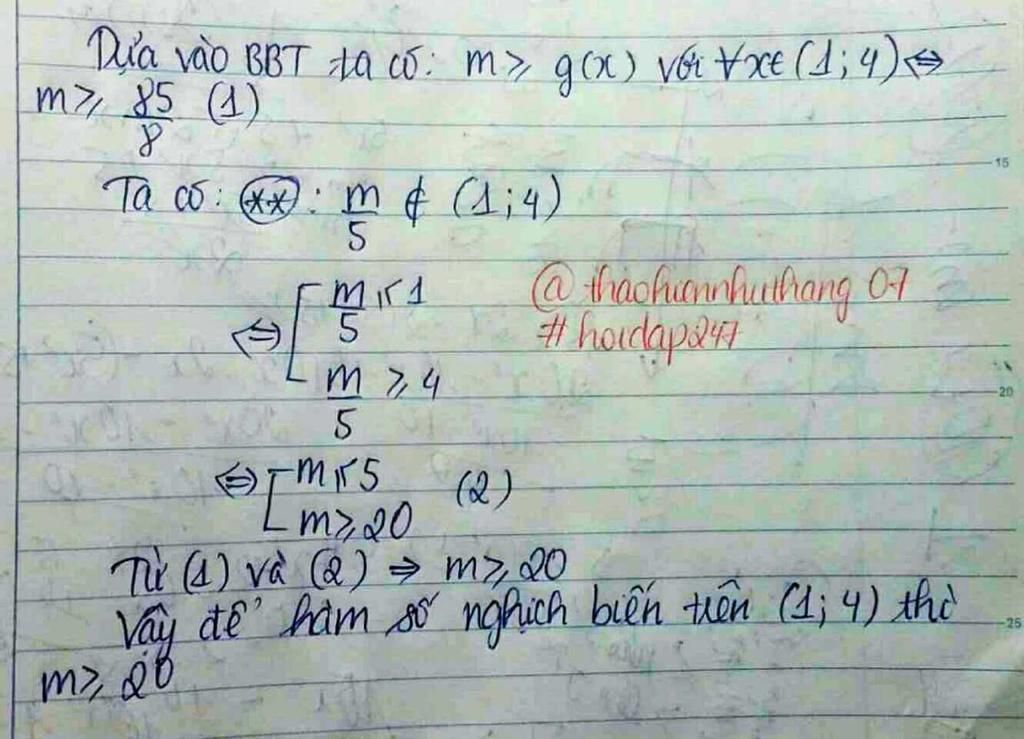 Dựa vào BBT ta có: m ≥ g(x) với ∀x∈(1;4) ⇔
m ≥ 85/8 (1)
15
Ta có: (**): m/5 ∉ (1;4)
⇔ [ m/5 ≤ 1
@thaohiannhuthang 07
#hoidap247
m/5 ≥ 4
20
⇔ [ m ≤ 5 (2)
m ≥ 20
Từ (1) và (2) ⇒ m ≥ 20
Vậy để hàm số nghịch biến trên (1;4) thì
25
m ≥ 20